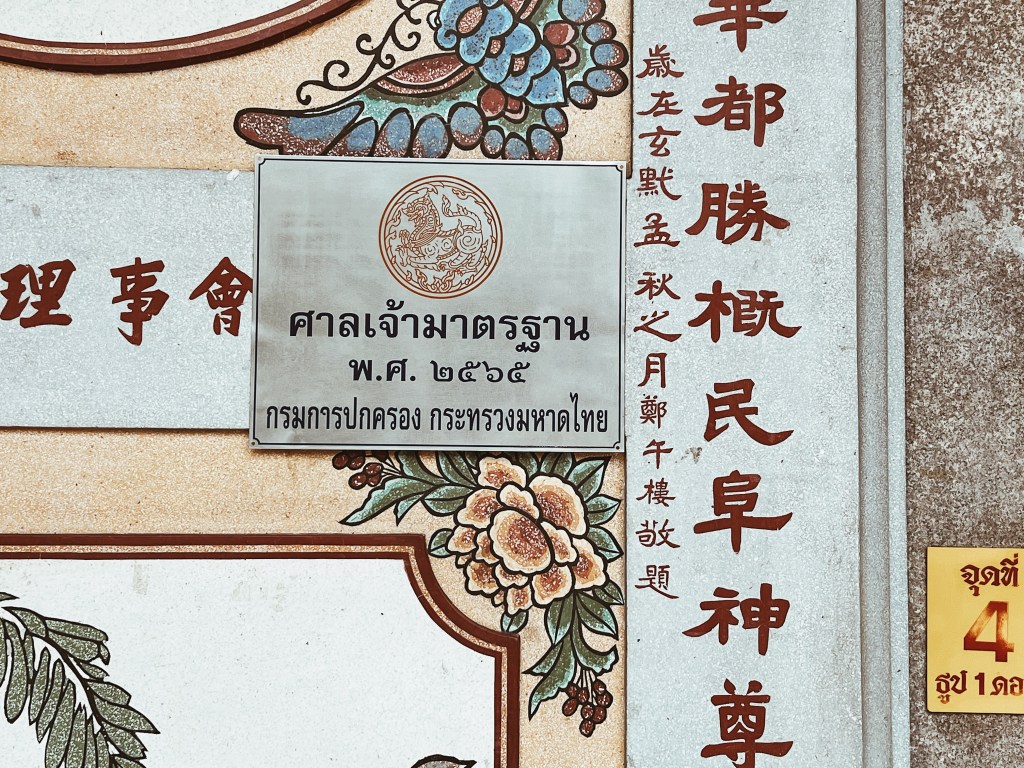 理事會
ศาลเจ้ามาตรฐาน
พ.ศ. ๒๕๖๕
กรมการปกครอง กระทรวงมหาดไทย
歲在玄黓孟秋之月鄭午樓敬題
華都勝概民阜神尊
จุดที่
4
ธูป 1 ดอ